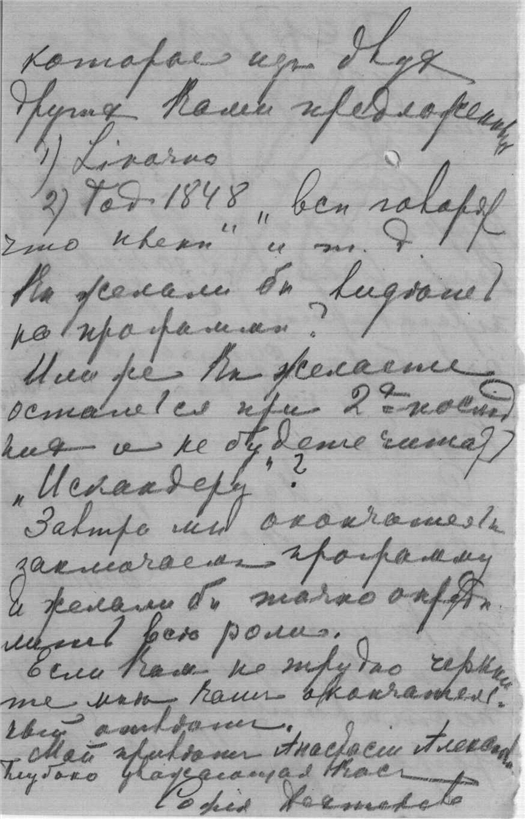 которые изъ двухъ
другихъ Вами предложенныхъ
1) Lікочко
2) Годъ 1848 „вси говорятъ
что пѣвецъ" и т. д.
Вы желали бы видѣть
на программѣ?
Или же Вы желаете
остаться при 2хъ послѣд
нихъ и не будете читать
„Искандеру"?
Завтра мы окончательно
заключаемъ программу
и желали бы точно опредѣ
лить всѣ роли.
Если Вамъ не трудно черкни
те мнѣ Вашъ окончатель-
ный отвѣтъ.
Мой привѣтъ Анастасіи Алекс
Глубоко уважающая Васъ
Софія